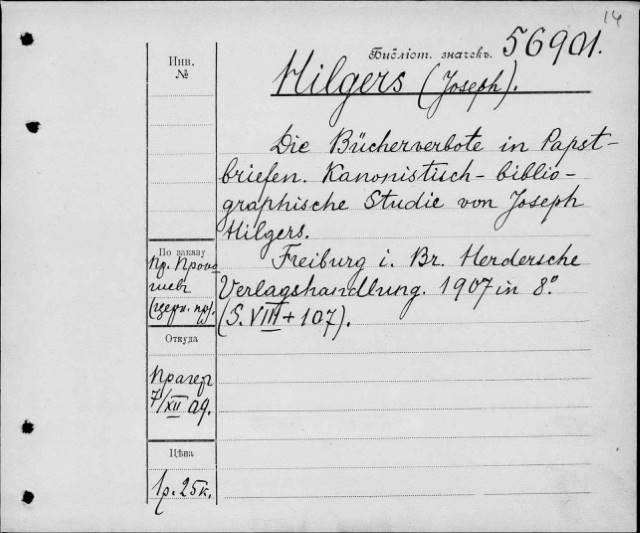 14
Библіот. значекъ. 56901.
Инв.
№
Hilgers (Joseph).
Die Bücherverbote in Papst-
briefen. Kanonistisch-biblio-
graphische Studie von Joseph
Hilgers.
Freiburg i. Br. Herdersche
Verlagshandlung. 1907 in 8.°
(S. VIII + 107).
По заказу
Пр.
(церк. пр).
Откуда
Прагеръ
7/XII 09.
Цѣна
1р. 25к.